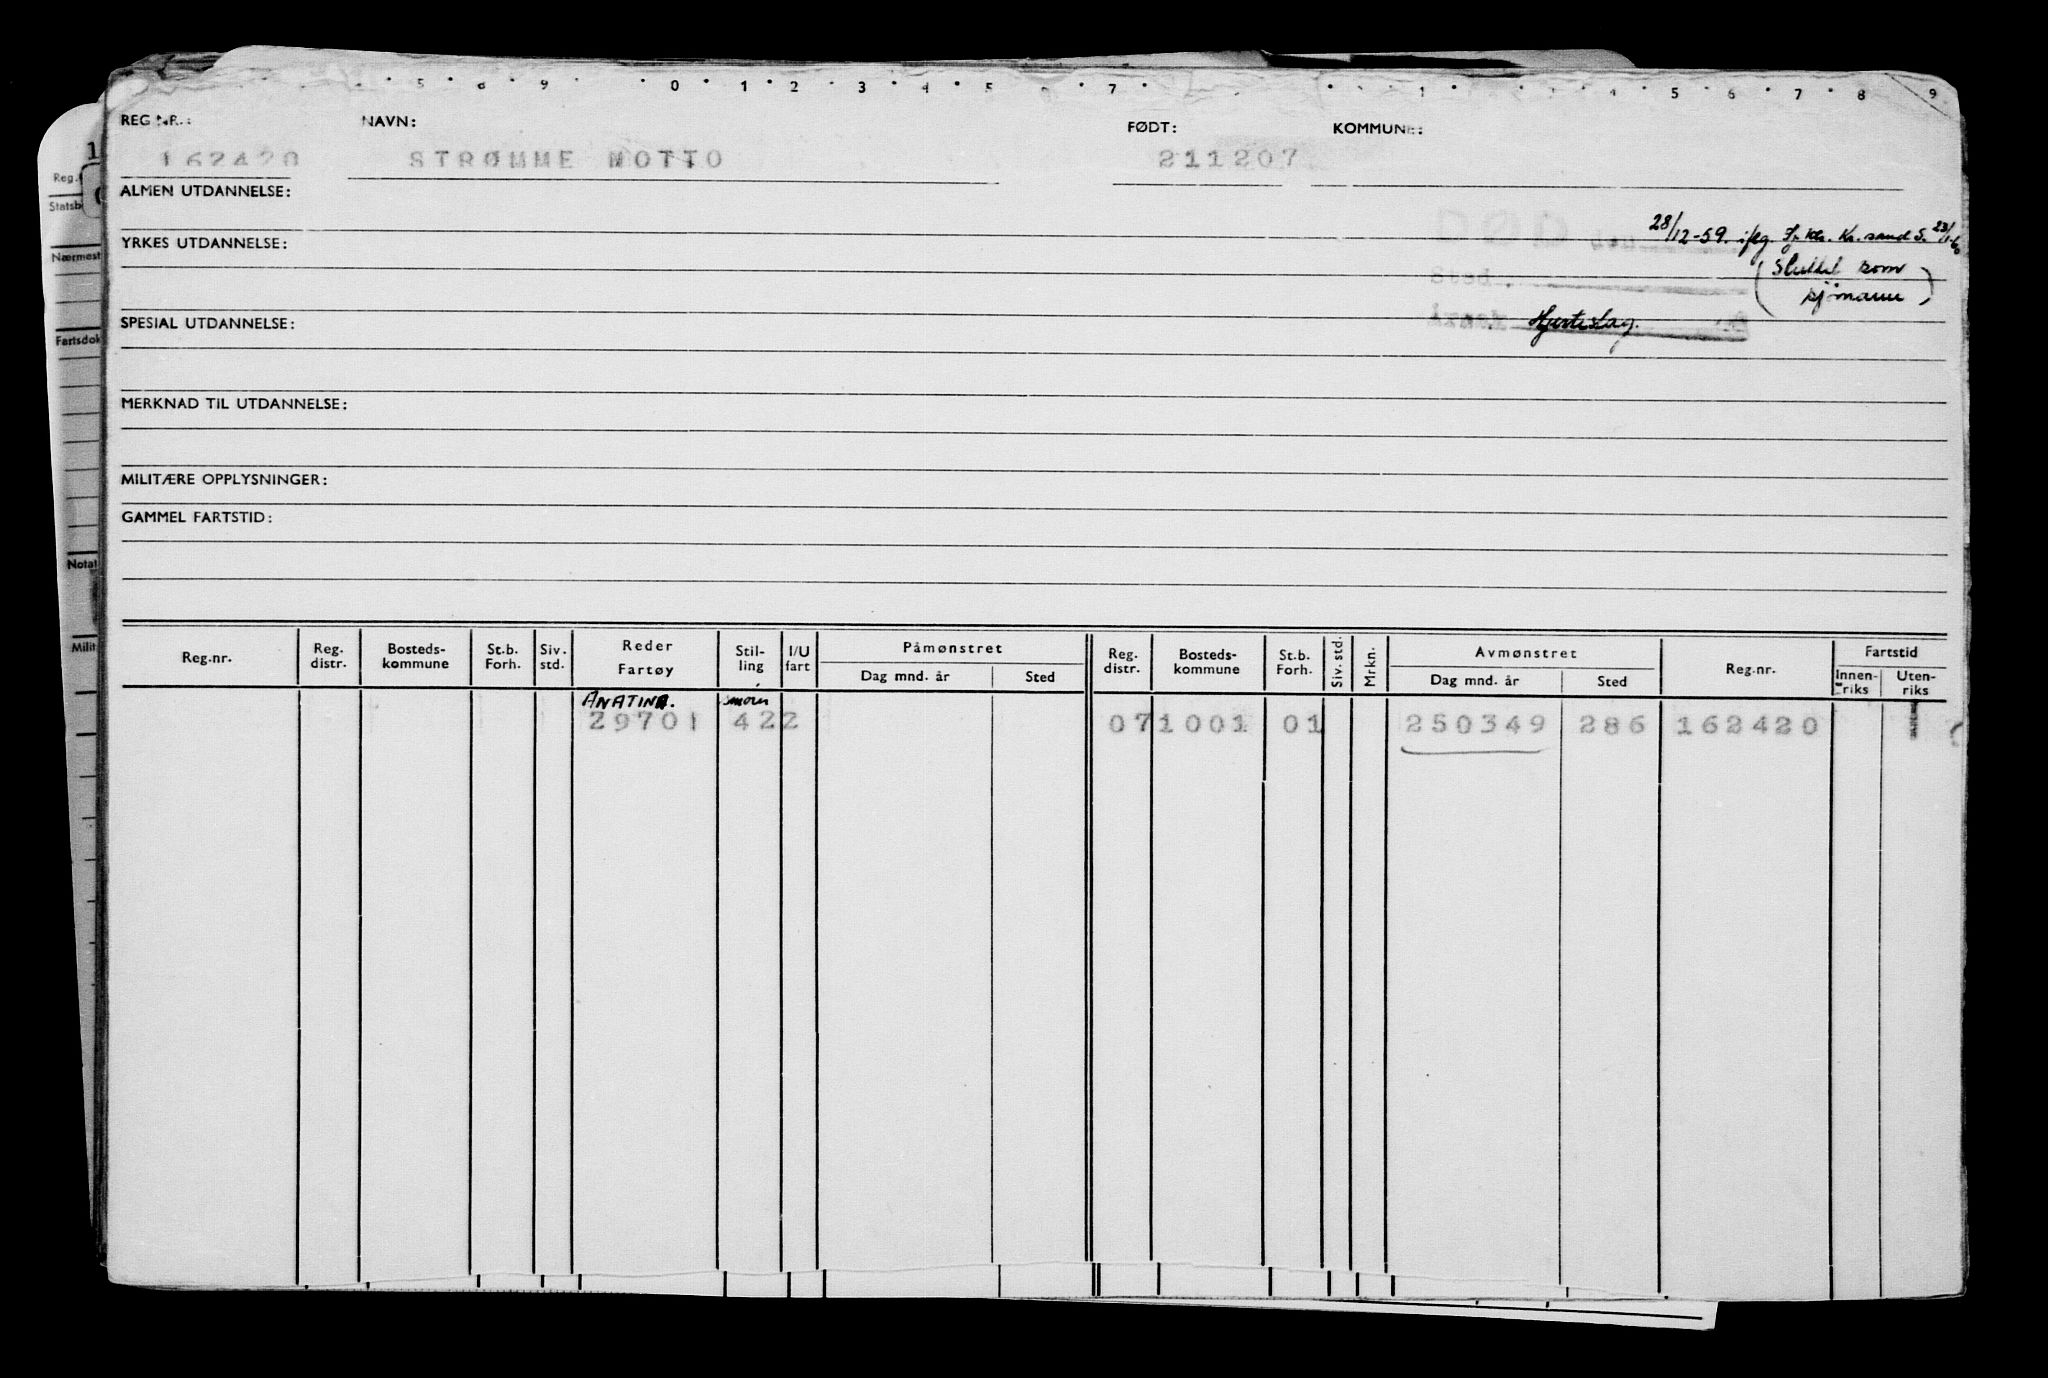 5 6 9 0 1 2 3 4 5 7 1 4 5 6 7 8 9
REG NR.: NAVN: FØDT: KOMMUNE:
162420 STRØMME MOTTO 211207
ALMEN UTDANNELSE:
DØD 28/12-59. iføg. Kr.sand S. 23/1-60
YRKES UTDANNELSE:
(Sluttet som
Sted
sjømann)
SPESIAL UTDANNELSE:
Årsak Hjerteslag.
MERKNAD TIL UTDANNELSE:
MILITÆRE OPPLYSNINGER:
GAMMEL FARTSTID:
Reg.nr. Reg. distr. Bosteds-kommune St.b. Forh. Siv. std. Reder Fartøy Stil-ling I/U fart Påmønstret Dag mnd. år Sted Reg. distr. Bosteds-kommune St.b. Forh. Siv. std. Mrkn. Avmønstret Dag mnd. år Sted Reg.nr. Fartstid Innen-riks Uten-riks
ANATINA. smøre
29701 422 07 1001 01 250349 286 162420 1
Reg.
Statsb
Nærmest
Fartsdok
Notat
Milit